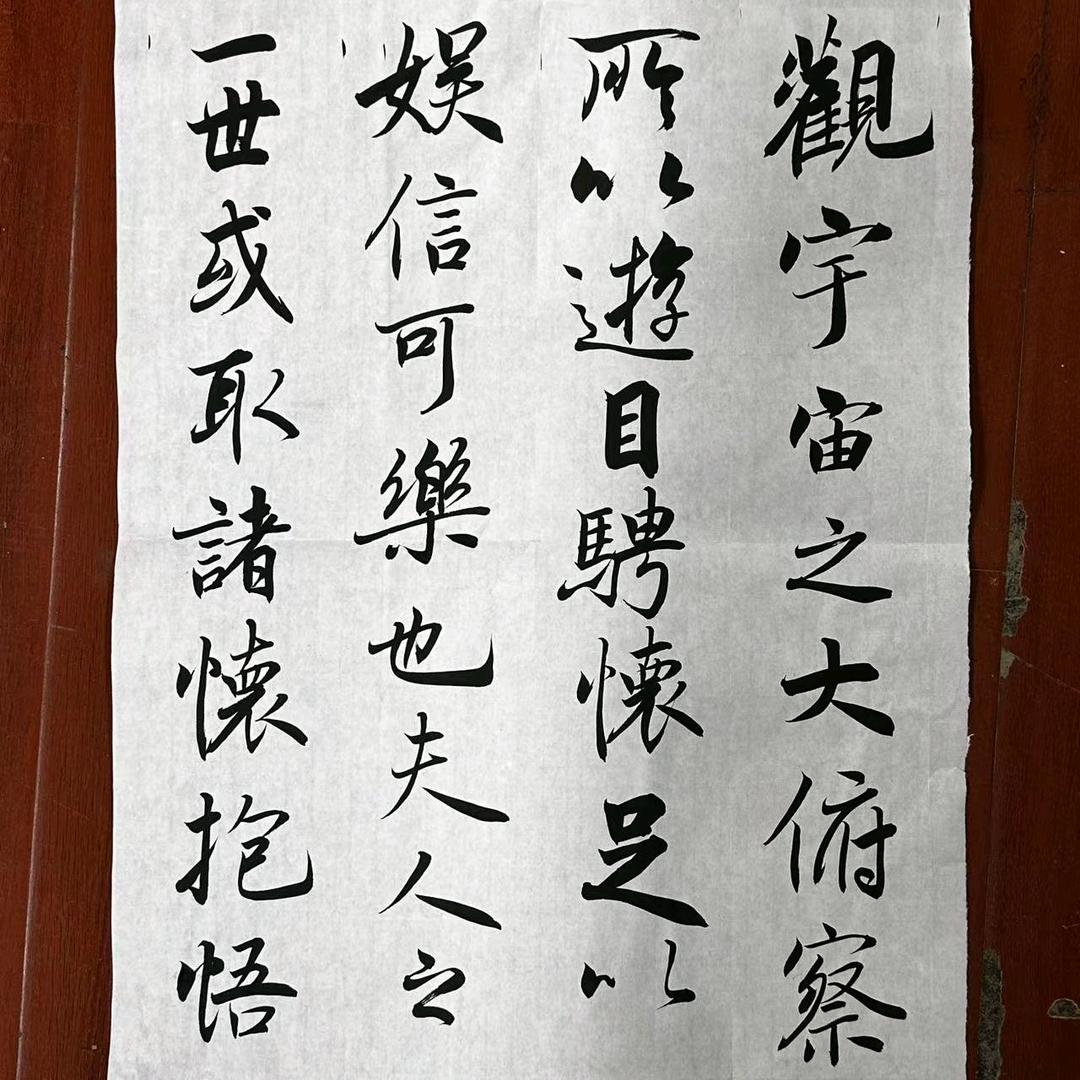 觀宇宙之大俯察
所以遊目騁懷足以
娛信可樂也夫人之
一世或取諸懷抱悟